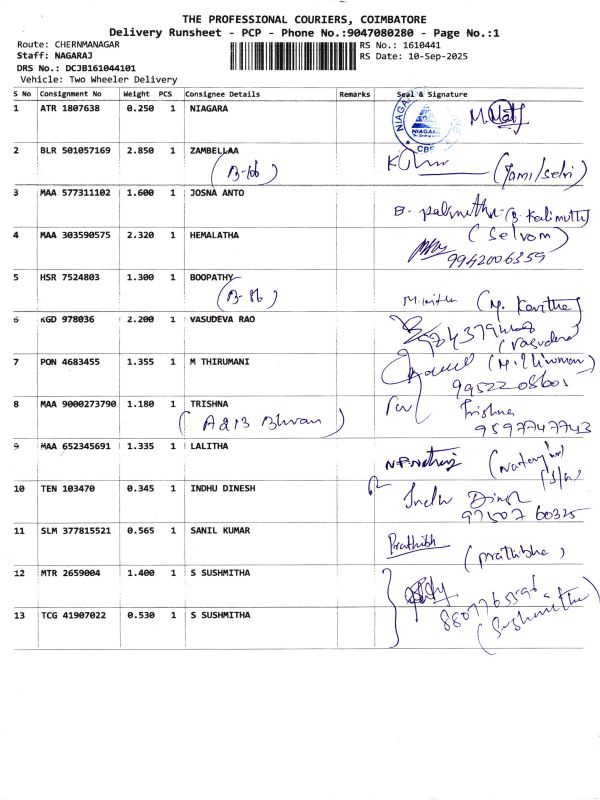 THE PROFESSIONAL COURIERS, COIMBATORE
Delivery Runsheet - PCP - Phone No.:9047080280 - Page No.:1
Route: CHERNMANAGAR RS No.: 1610441
Staff: NAGARAJ RS Date: 10-Sep-2025
DRS No.: DCJB161044101
Vehicle: Two Wheeler Delivery
S No Consignment No Weight PCS Consignee Details Remarks Seal & Signature
1 ATR 1807638 0.250 1 NIAGARA NIAGARA
NIAGARA
CBE
2 BLR 501057169 2.850 1 ZAMBELLAA
(B-106) (Tamil selvi)
3 MAA 577311102 1.600 1 JOSNA ANTO
4 MAA 303590575 2.320 1 HEMALATHA (Selvam)
9942006359
5 HSR 7524803 1.300 1 BOOPATHY
(B-86) (M. Kavitha)
6 KGD 978036 2.200 1 VASUDEVA RAO
(Vasudeva)
7 PON 4683455 1.355 1 M THIRUMANI
9952208601
8 MAA 9000273790 1.180 1 TRISHNA Trishna
(A213 Bhvan) 9597747743
9 MAA 652345691 1.335 1 LALITHA
10 TEN 103470 0.345 1 INDHU DINESH Indu Dinesh
97507 60325
11 SLM 377815521 0.565 1 SANIL KUMAR Prathibh
(prathibha)
12 MTR 2659004 1.400 1 S SUSHMITHA
13 TCG 41907022 0.530 1 S SUSHMITHA (Sushmitha)